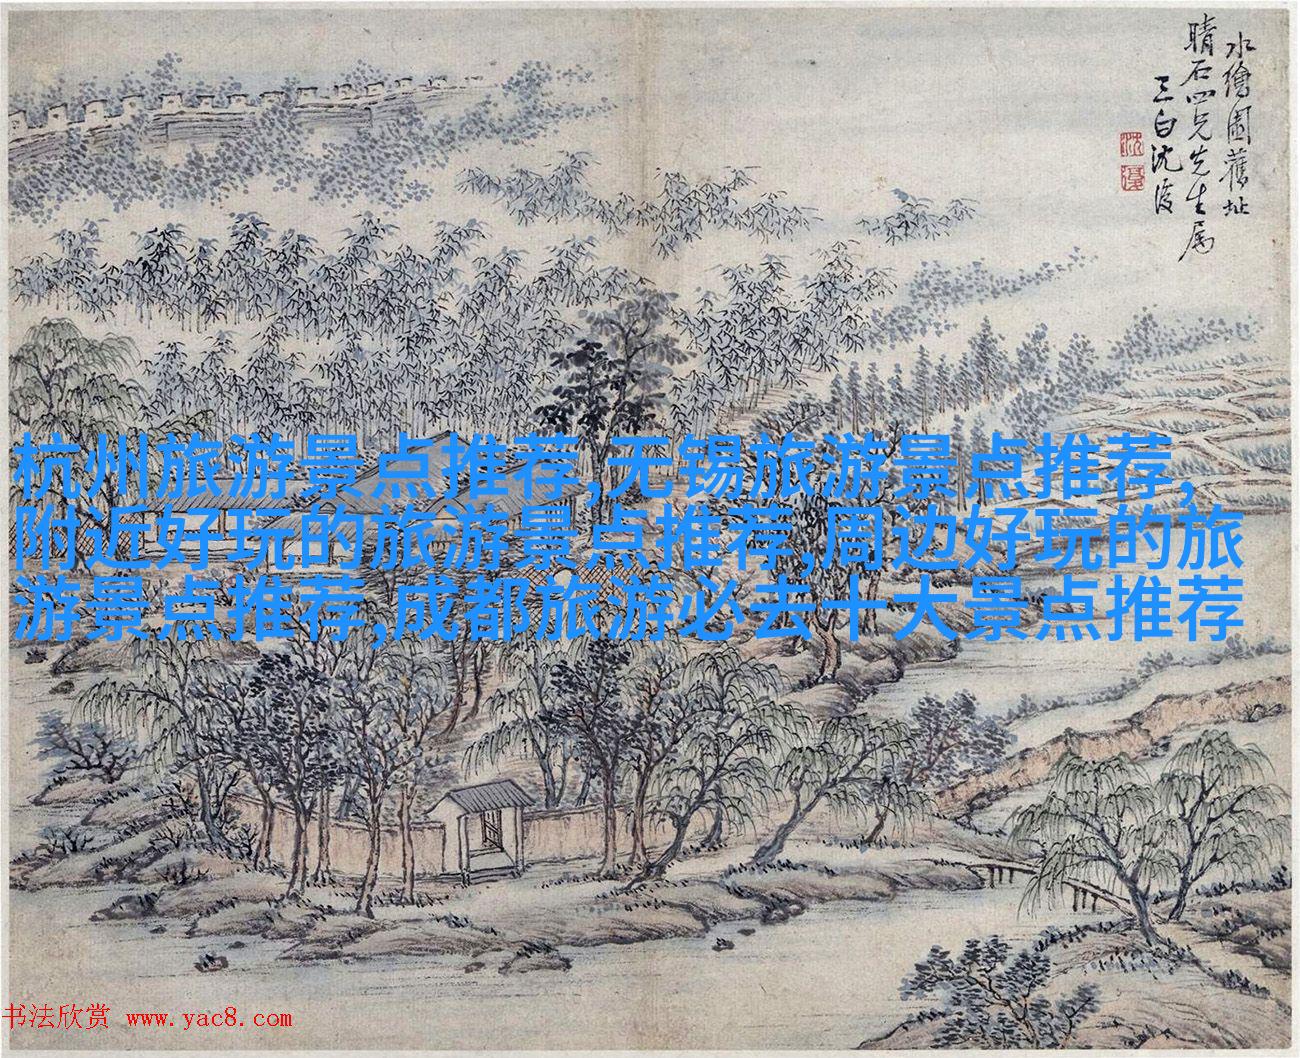 水繪園舊址
晴石四兄先生属
三白沈復
沈
復
杭州旅游景点推荐,无锡旅游景点推荐,
附近好玩的旅游景点推荐,周边好玩的旅
游景点推荐,成都旅游必去十大景点推荐
书法欣赏 www.yac8.com